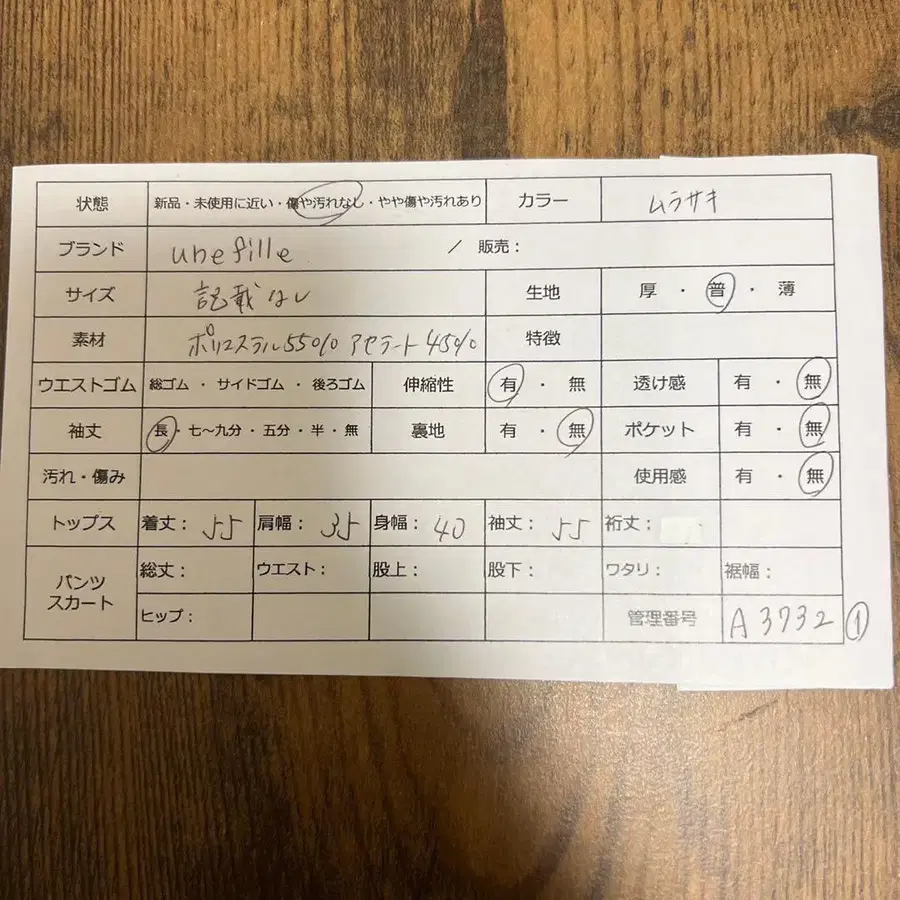 状態 新品・未使用に近い・傷や汚れなし・やや傷や汚れあり カラー ムラサキ
ブランド une fille / 販売：
サイズ 記載なし 生地 厚・普・薄
素材 ポリエステル55% アセテート45% 特徴
ウエストゴム 総ゴム・サイドゴム・後ろゴム 伸縮性 有・無 透け感 有・無
袖丈 長・七〜九分・五分・半・無 裏地 有・無 ポケット 有・無
汚れ・傷み 使用感 有・無
トップス 着丈：55 肩幅：35 身幅：40 袖丈：55 裄丈：
パンツ
スカート
総丈： ウエスト： 股上： 股下： ワタリ： 裾幅：
ヒップ： 管理番号 A3732 ①